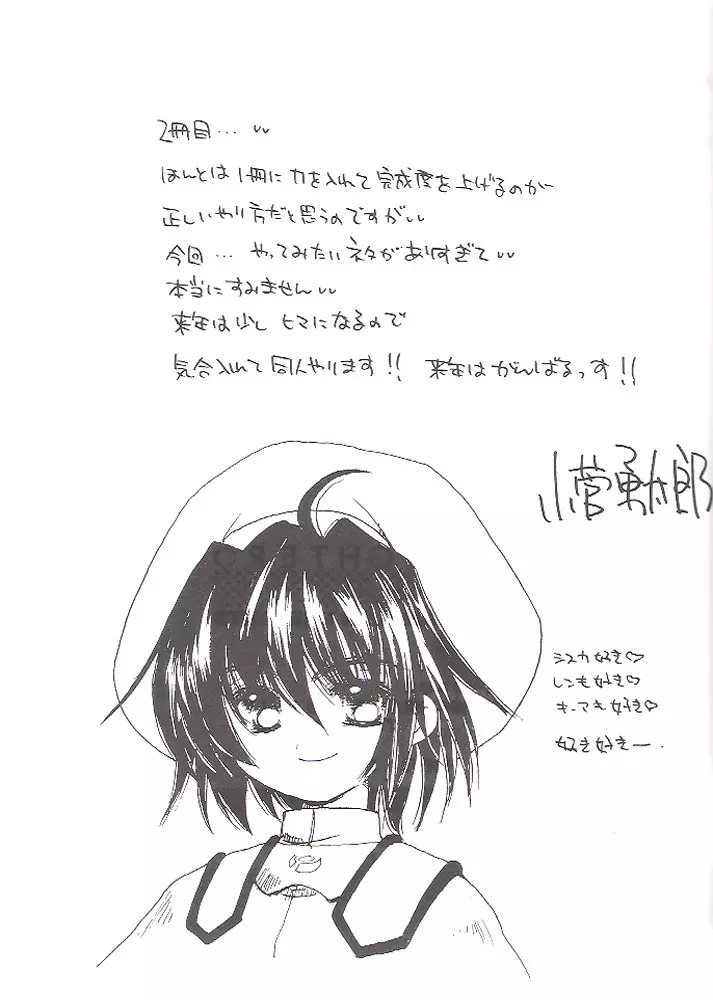 2冊目… 〃
ほんとは1冊に力を入れて完成度を上げるのが
正しいやり方だと思うのですが〃
今回… やってみたいネタがありすぎて〃
本当にすみません〃
来年は少し ヒマになるので
気合入れて同人やります!! 来年はがんばるっす!!
小菅勇太郎
シスカ好き♡
しんも好き♡
キーても好き♡
好き好きー.